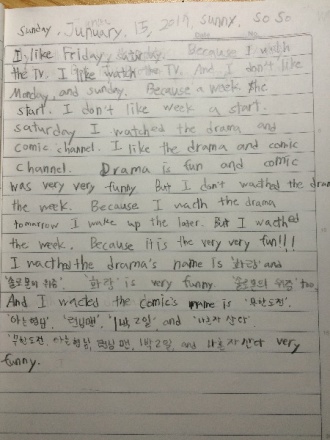 Sunday, Junuary, 15, 2017, sunny. so so
I like Friday, saturday. Because I watch
the TV. I like watch the TV. And I don't like
Monday, and sunday. Because a week the
start. I don't like week a start.
saturday I watched the drama and
comic channel. I like the drama and comic
channel. Drama is fun and comic
was very very funny. But I don't wacthed the dram
the week. Because I wacth the drama
tomorrow I wake up the later. But I wacthed
the week. Because it is the very very fun!!!
I wacthed the drama's name is '화랑' and
'솔로몬의 위증'. '화랑' is very funny '솔로몬의 위증' too.
And I wacked the comic's name is '무한도전',
'아는형님', '런닝맨', '1박2일', and '나혼자 산다'
'무한도전, 아는형님, 런닝맨, 1박2일, and 나혼자산다 very
funny.